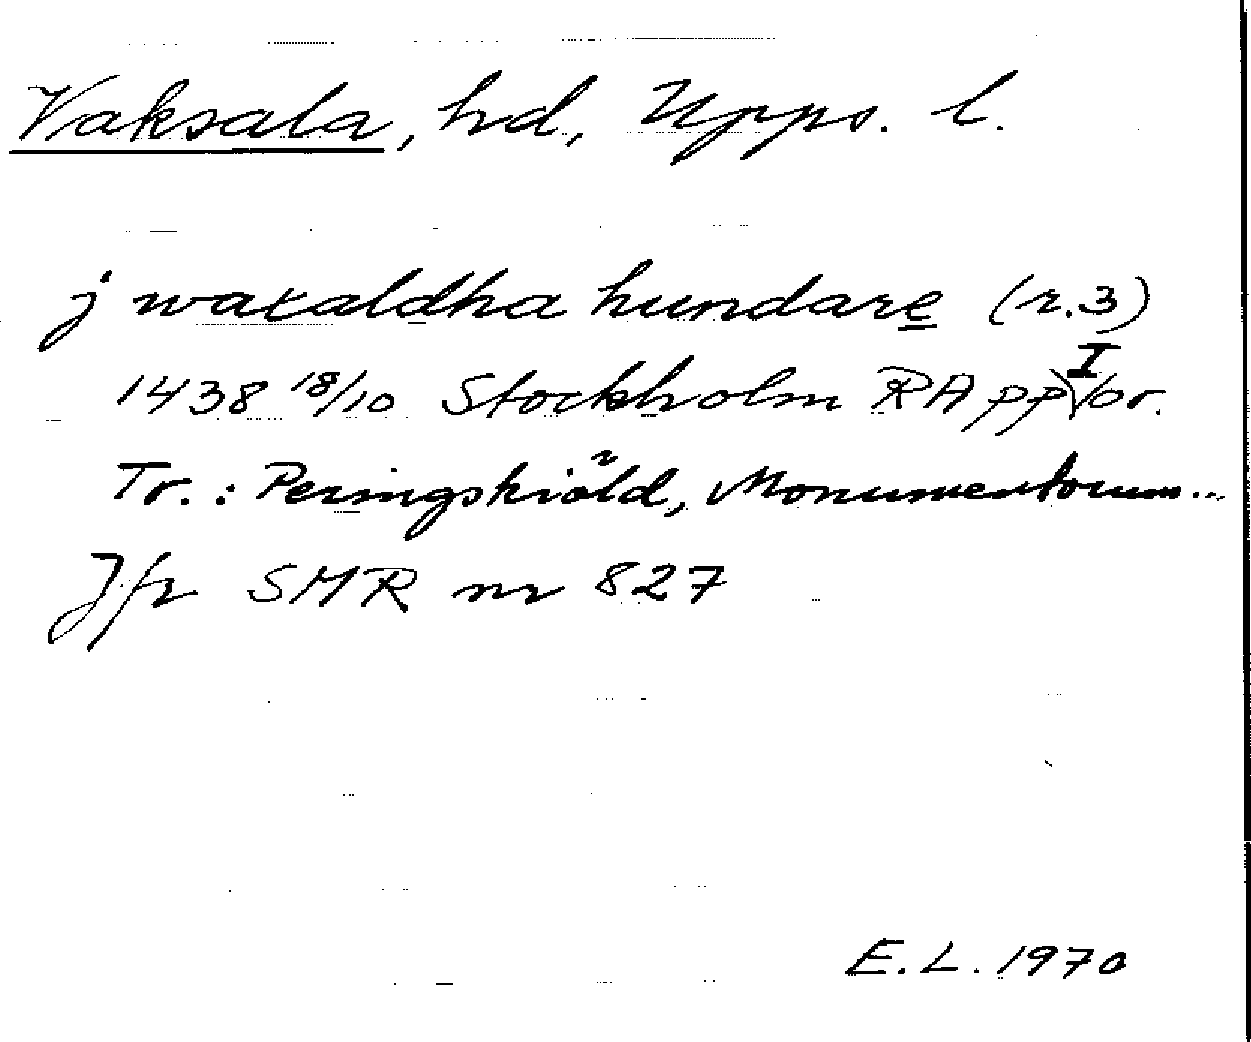 Vaksala, hd, Upps. l.
j waxaldha hundare (r.3)
1438 18/10 Stockholm RA pp I or.
Tr.: Peringskiöld, Monumentorum...
Jfr SMR nr 827
E.L. 1970